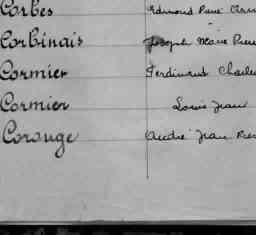 Corbes Edmond René
Corbinais Joseph Marie Pierre
Cormier Ferdinand Charles
Cormier Louis Jean
Corouge André Jean